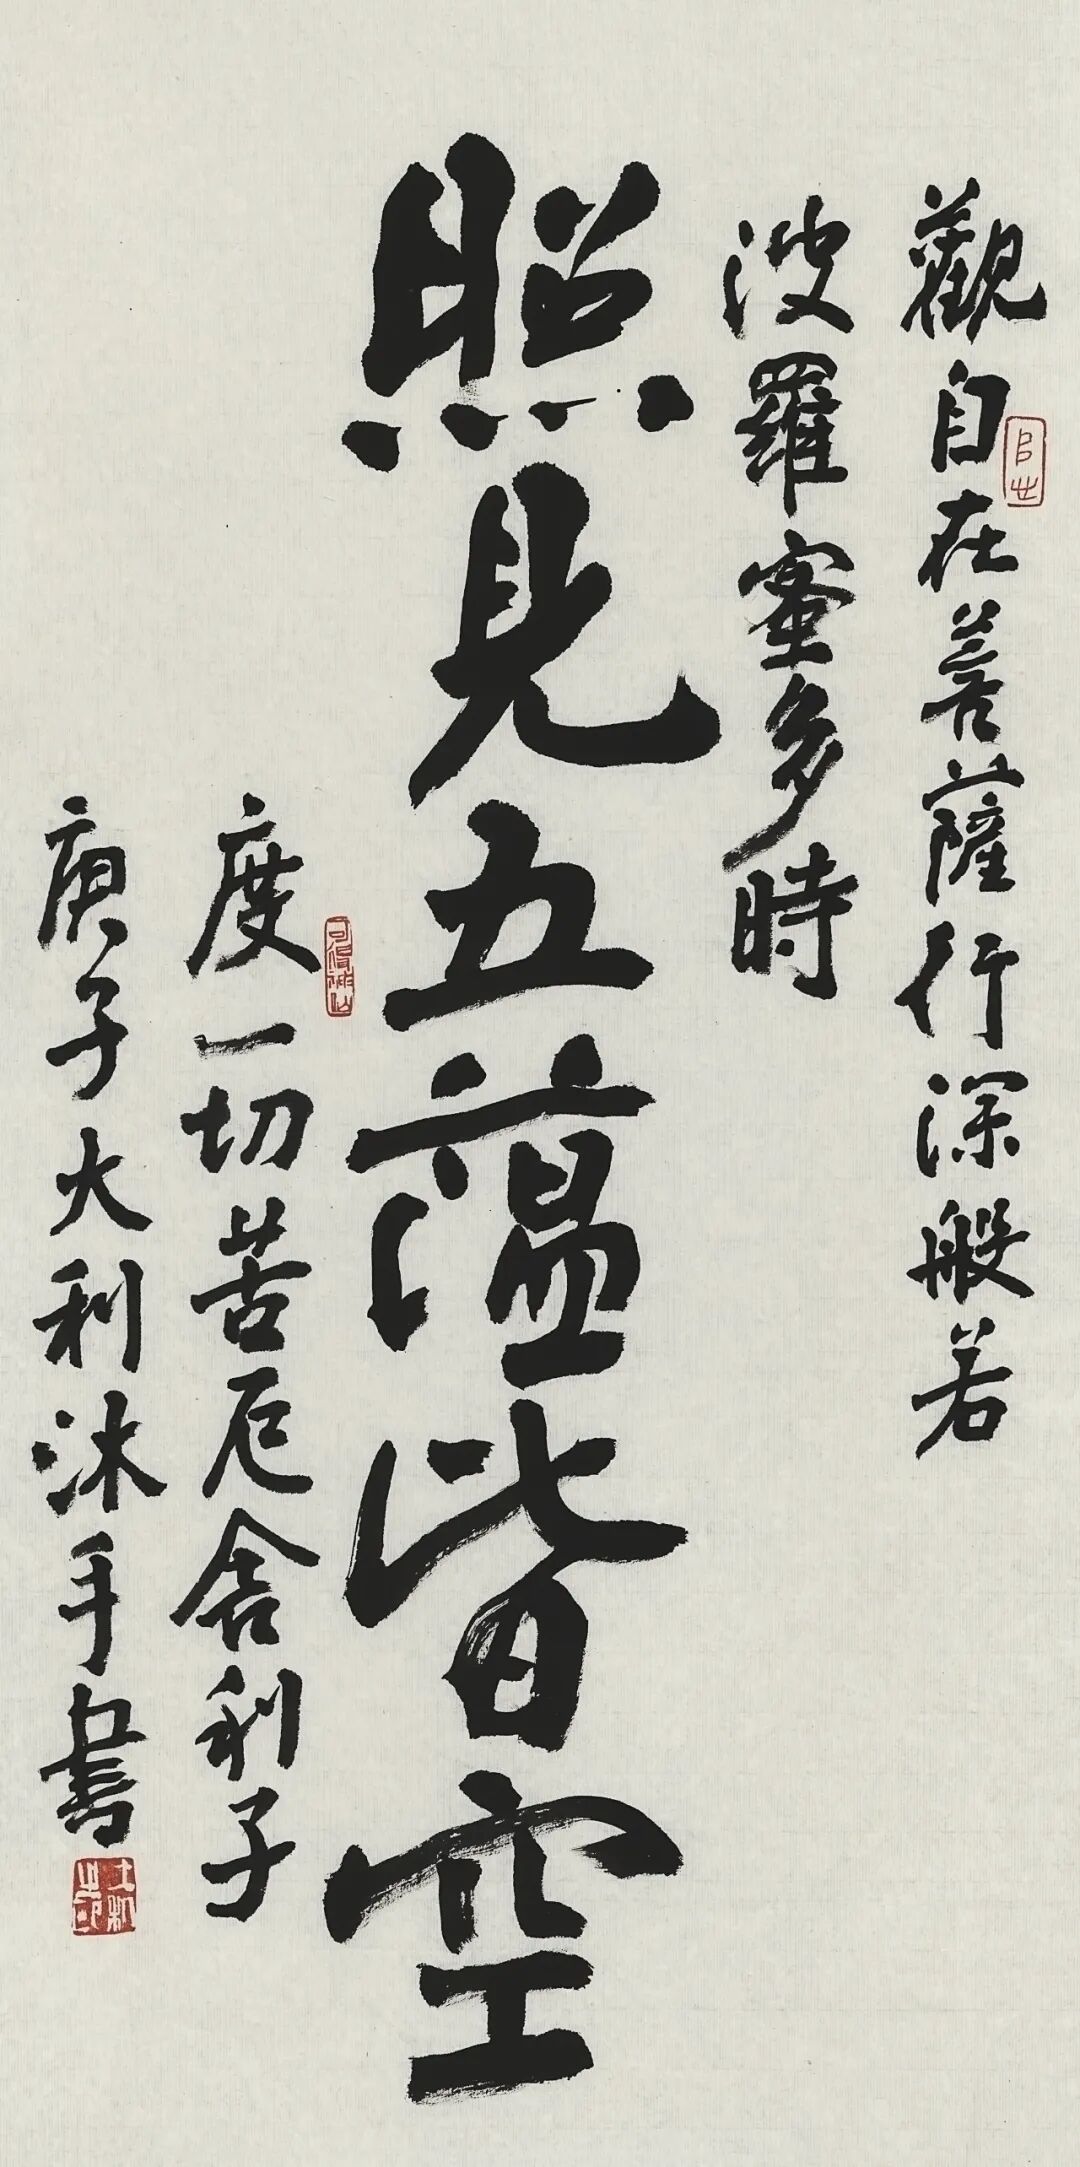 觀自在菩薩行深般若
波羅蜜多時
照見五蘊皆空
度一切苦厄舍利子
庚子大利沐手書